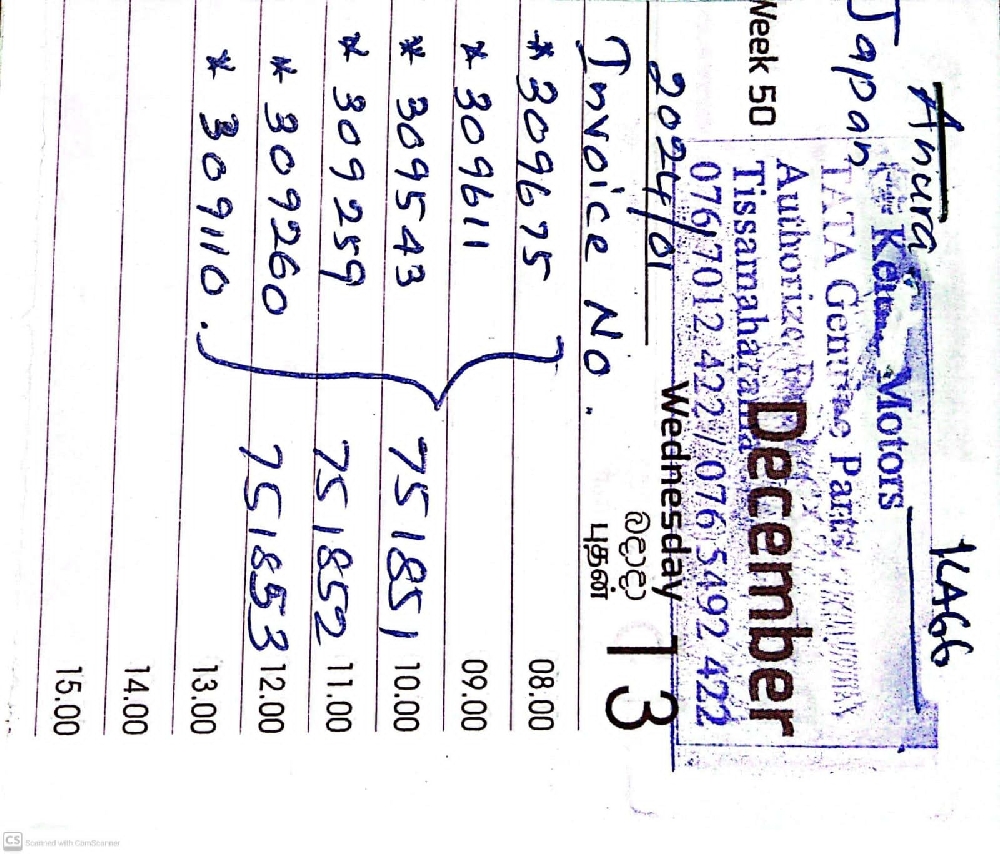 Anura KAGG
Japan
Motors
TATA Genuine Parts
Authorize
Week 50 December
Tissamaharama
076 7012 422 / 076 5492 422
2024/01 Wednesday 13
බදාදා
புதன்
Invoice No.
* 309675 08.00
* 309611 09.00
* 309543 751851 10.00
* 309259 751852 11.00
* 309260 751853 12.00
* 309110. 13.00
14.00
15.00
CS Scanned with CamScanner